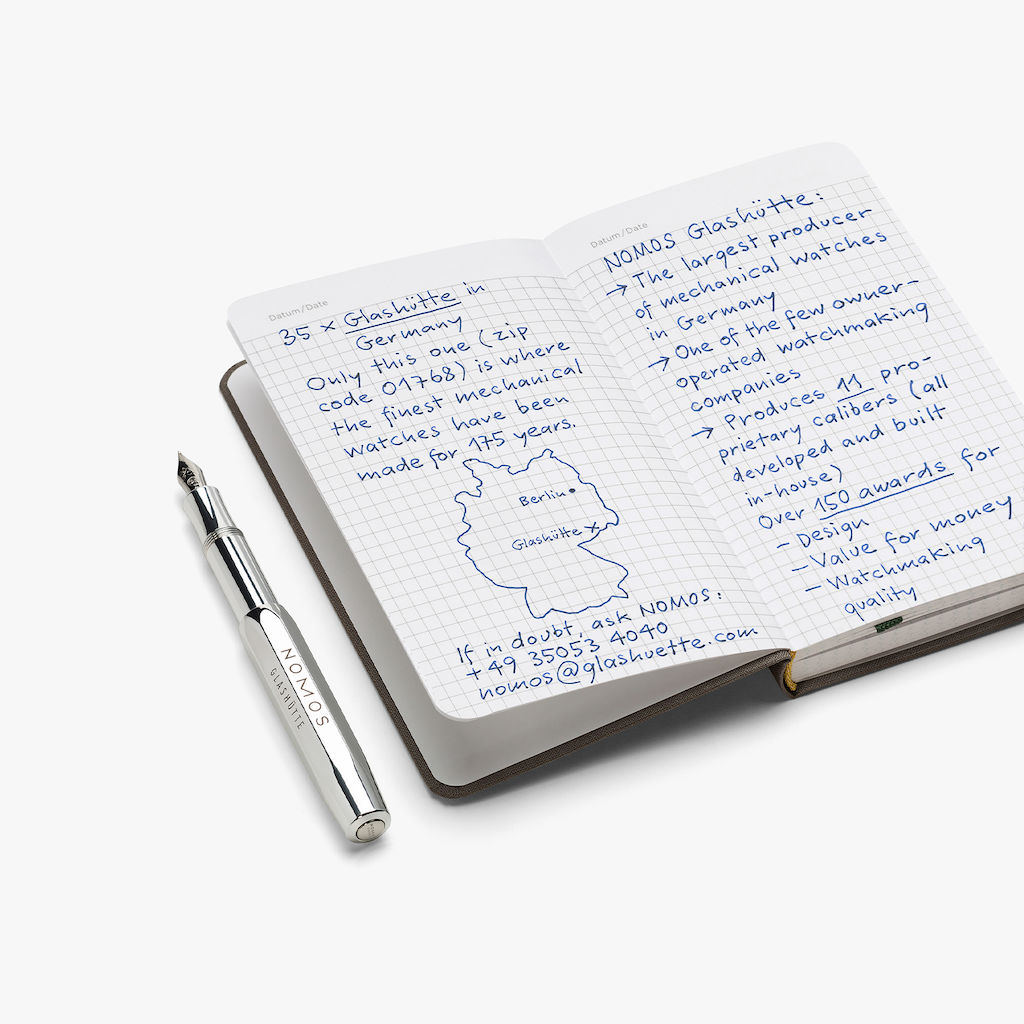 Datum/Date
35 × Glashütte in
Germany
Only this one (zip
code 01768) is where
the finest mechanical
watches have been
made for 175 years.
Berlin
Glashütte ×
If in doubt, ask NOMOS:
+49 35053 4040
nomos@glashuette.com
Datum/Date
NOMOS Glashütte:
→ The largest producer
of mechanical watches
in Germany
→ One of the few owner-
operated watchmaking
companies
→ Produces 11 pro-
prietary calibers (all
developed and built
in-house)
Over 150 awards for
– Design
– Value for money
– Watchmaking
quality
NOMOS
GLASHÜTTE